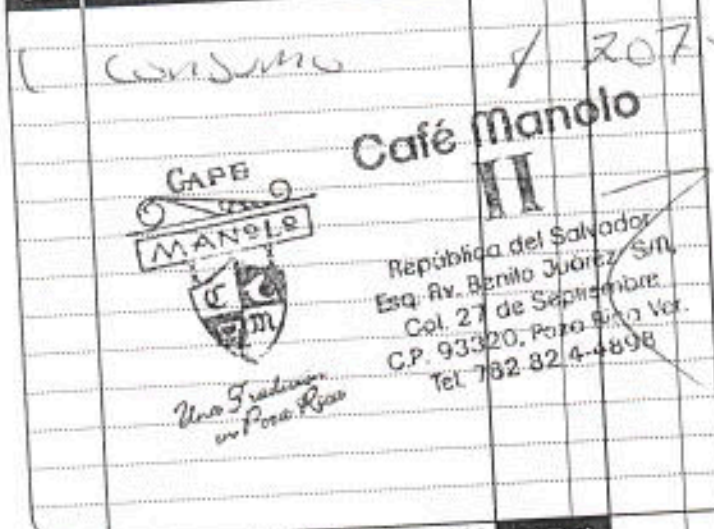 1 Consumo $ 207.
CAFE
MANOLO
C C
M
Una Tradición
en Poza Rica
Café Manolo
II
República del Salvador
Esq. Av. Benito Juárez S/N,
Col. 27 de Septiembre
C.P. 93320, Poza Rica Ver.
Tel. 782 82 4-4898